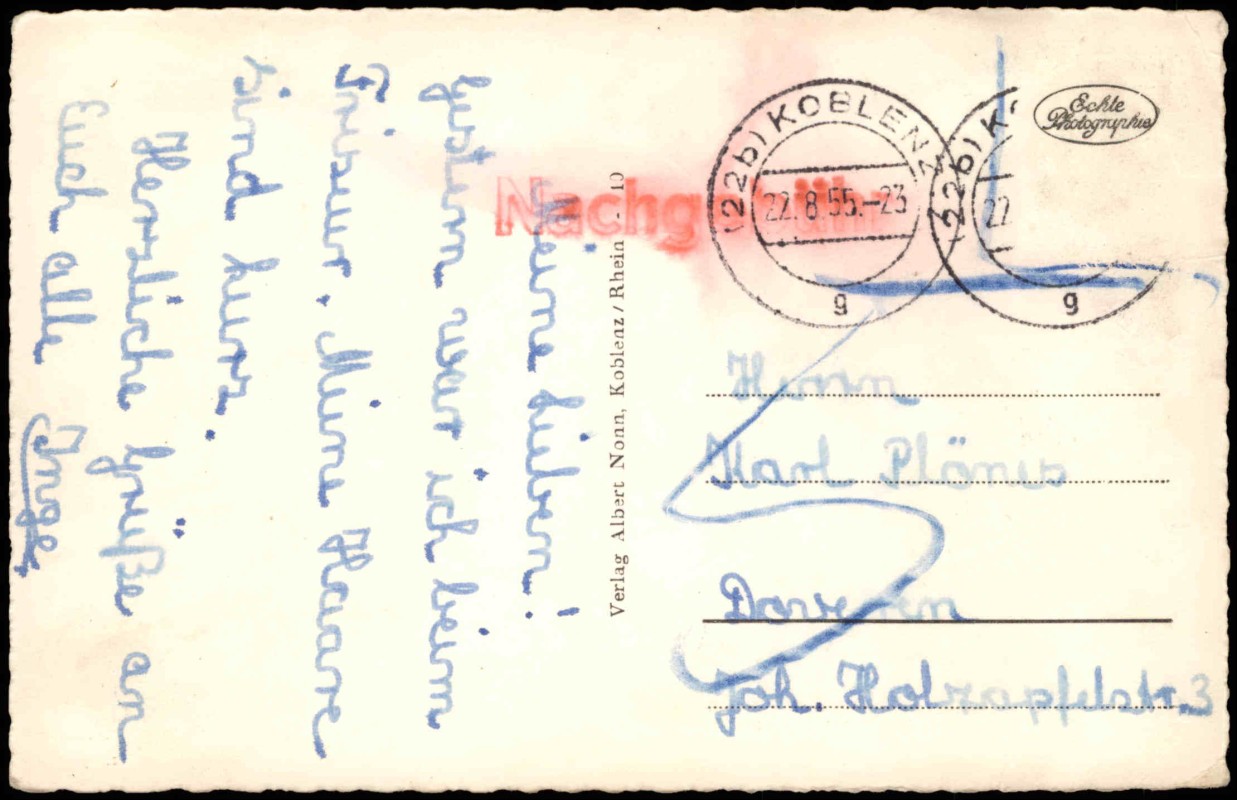 Meine Lieben!
Gestern war ich beim
Friseur. Meine Haare
sind kurz.
Herzliche Grüße an
Euch alle
Inge
Nachgebühr
Verlag Albert Nonn, Koblenz/Rhein - 10
(22b) KOBLENZ
22.8.55.-23
g
(22b) K
22
g
Echte
Photographie
Herrn
Karl Plönes
Joh. Holzapfelstr. 3